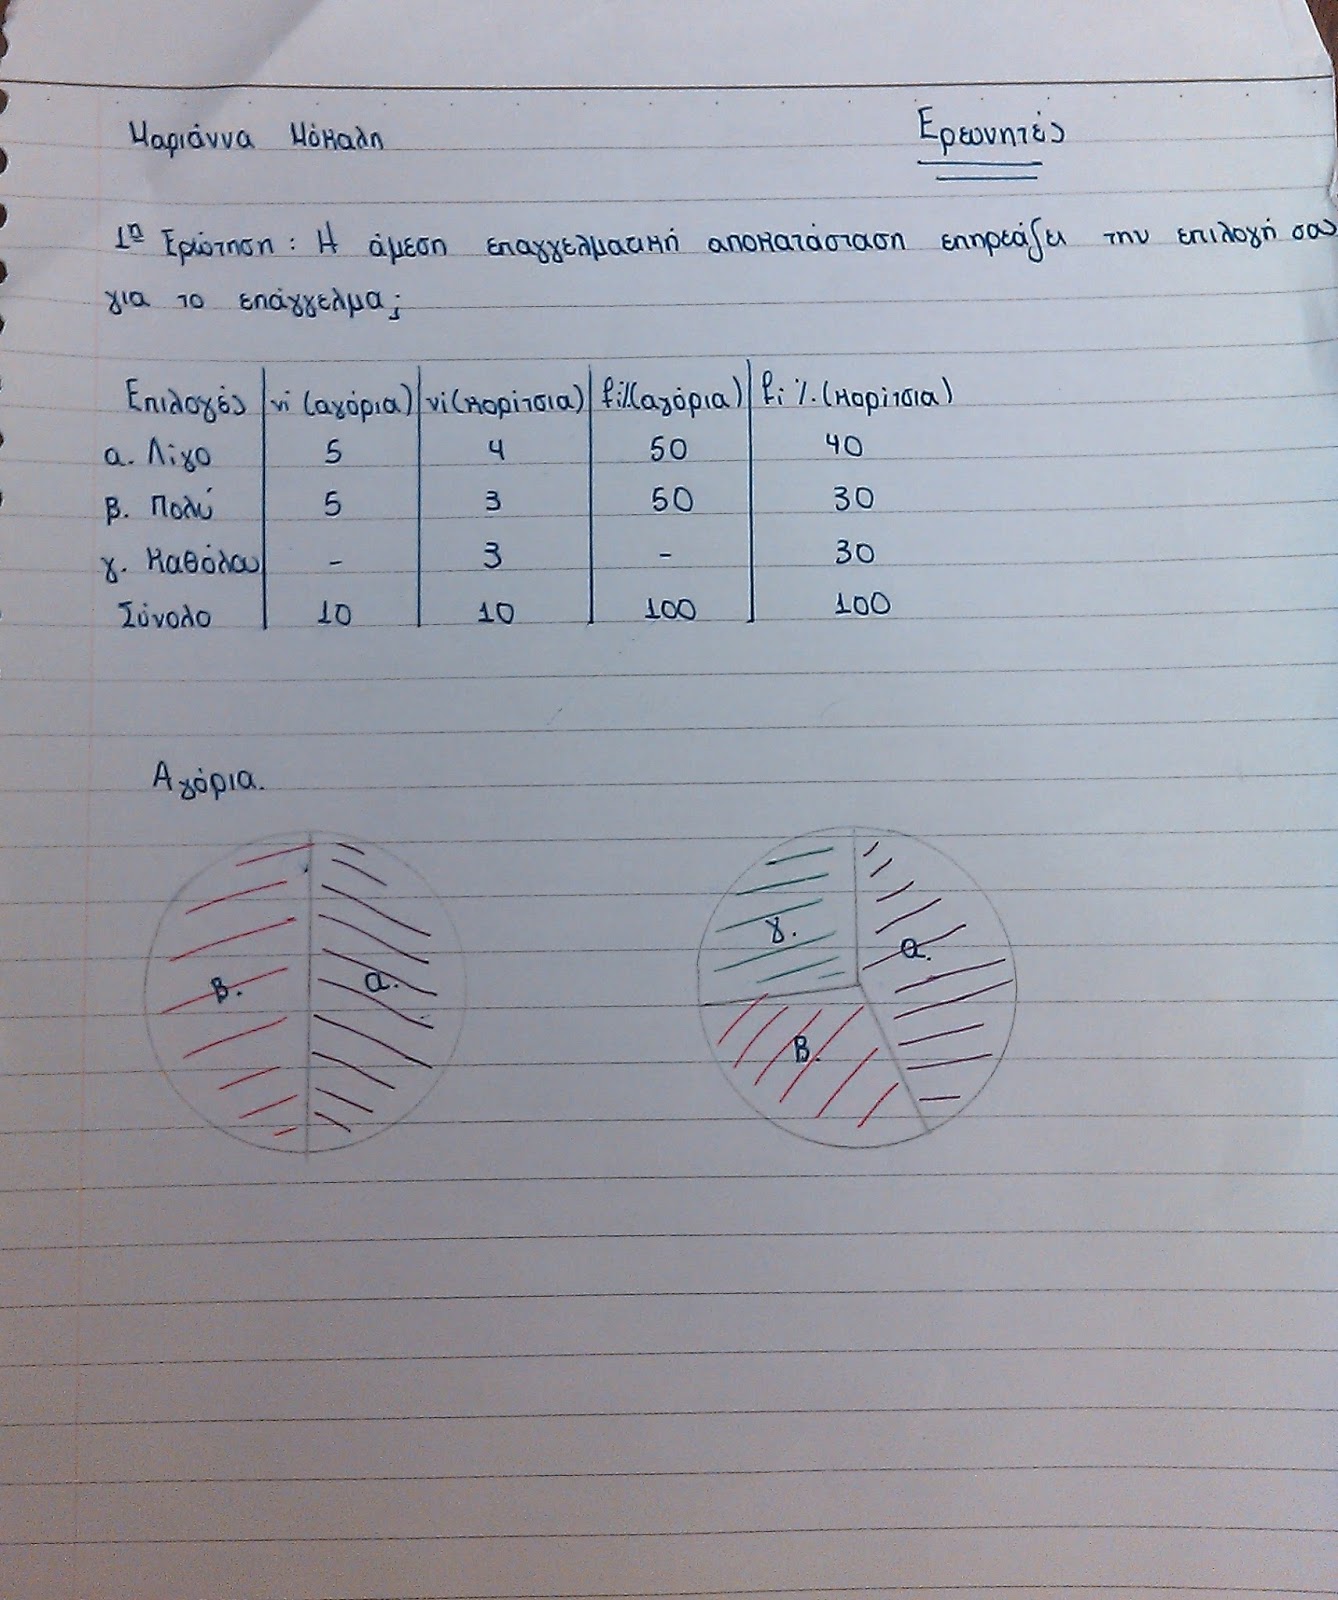 Μαριάννα Μόκαλη
Ερευνητές
1η Ερώτηση: Η άμεση επαγγελματική αποκατάσταση επηρεάζει την επιλογή σας
για το επάγγελμα;
Επιλογές νi (αγόρια) νi (κορίτσια) fi% (αγόρια) fi % (κορίτσια)
α. Λίγο 5 4 50 40
β. Πολύ 5 3 50 30
γ. Καθόλου - 3 - 30
Σύνολο 10 10 100 100
Αγόρια.
β. α.
γ. α.
β.